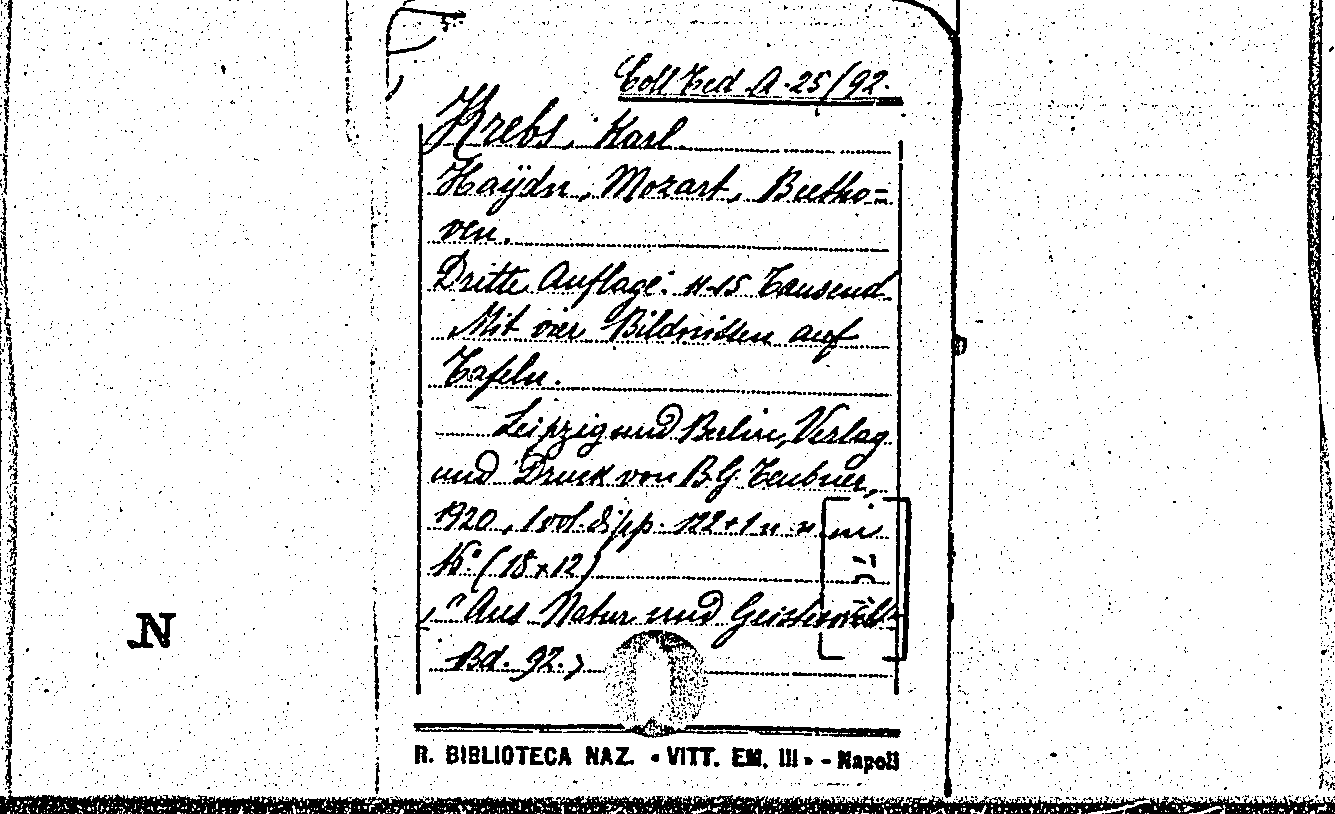 Coll Ted. A. 25/92.
Krebs, Karl.
Haÿdn, Mozart, Beetho=
ven.
Dritte Auflage: 11-15 Tausend.
Mit vier Bildnissen auf
Tafeln.
Leipzig und Berlin, Verlag
und Druck von B. G. Teubner,
1920, 1 vol. di pp. 122+1 n. n. in
16.° (18x12)
"Aus Natur und Geisteswelt
Bd. 92.
R. BIBLIOTECA NAZ. «VITT. EM. III» - Napoli
N